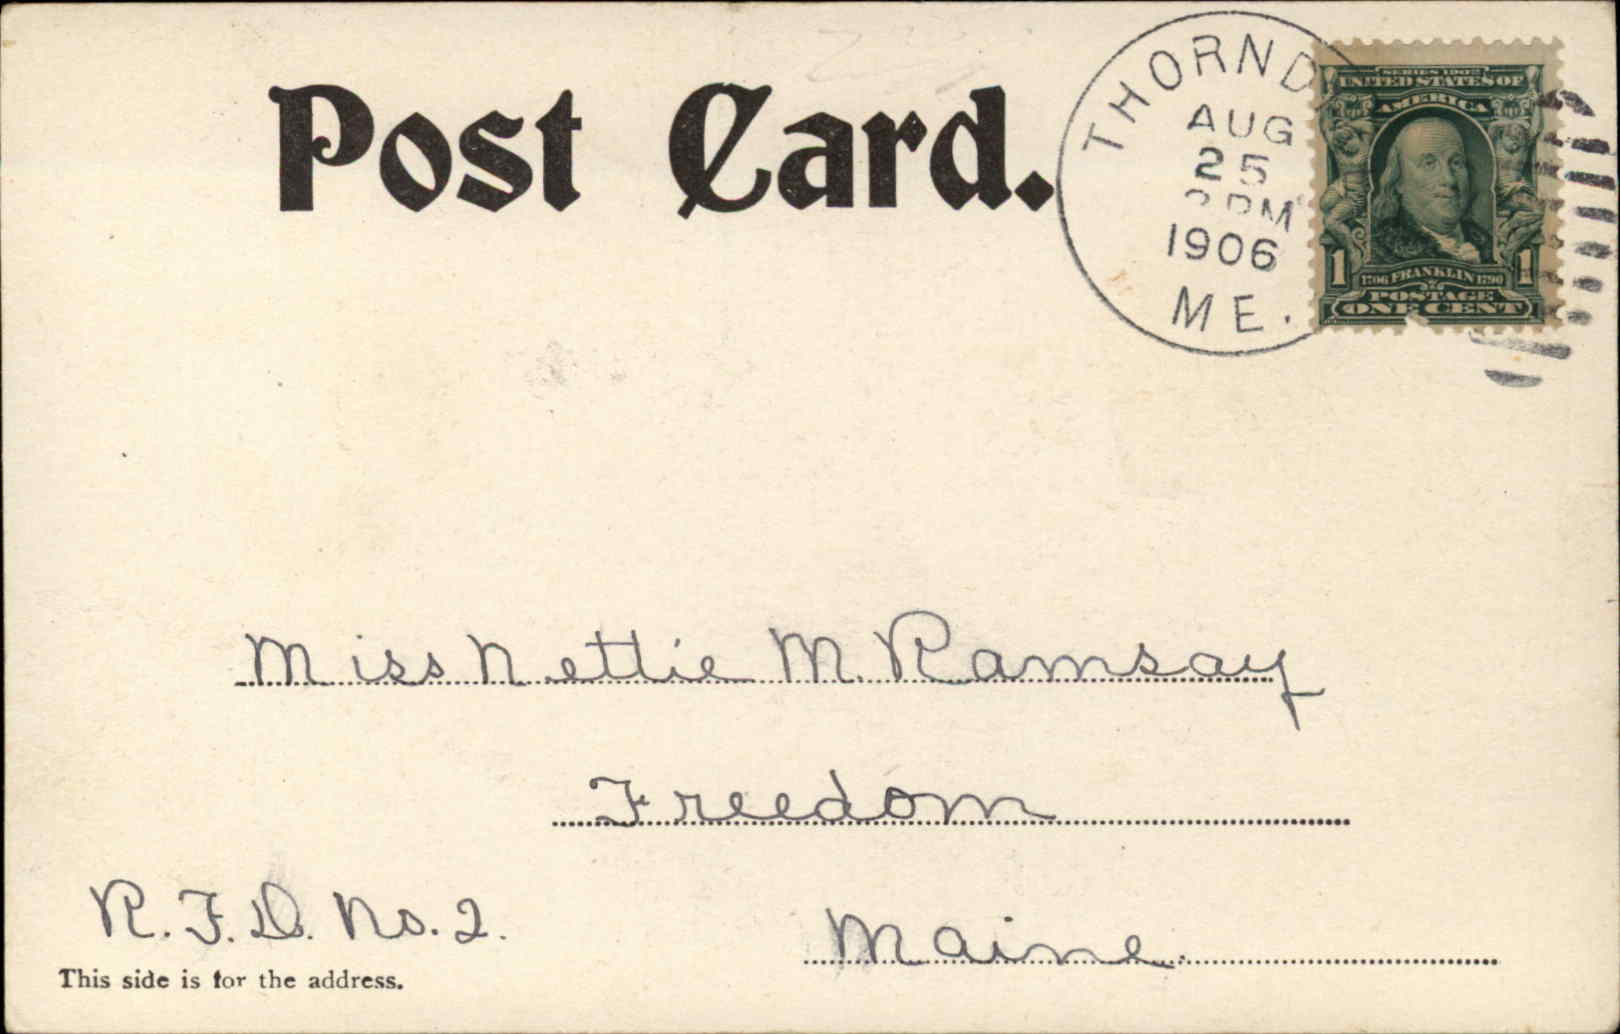 Post Card.
THORND
AUG
25
PM
1906
ME.
SERIES 1902
UNITED STATES OF
AMERICA
1 1706 FRANKLIN 1790 1
POSTAGE
ONE CENT
Miss Nettie M. Ramsay
Freedom
R.F.D. No. 2.
Maine.
This side is for the address.